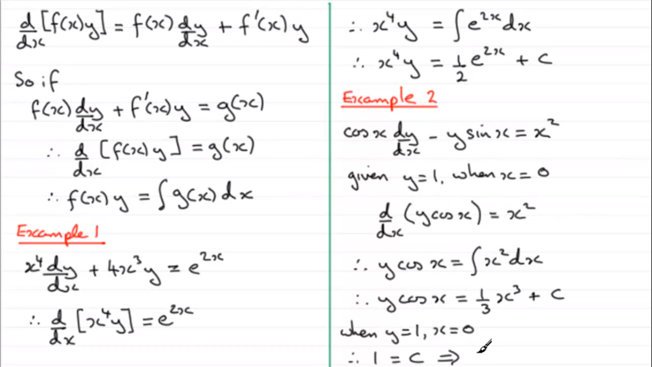 d/dx [f(x)y] = f(x) dy/dx + f'(x) y
So if
f(x) dy/dx + f'(x) y = g(x)
∴ d/dx [f(x) y] = g(x)
∴ f(x) y = ∫ g(x) dx
Example 1
x⁴ dy/dx + 4x³y = e²ˣ
∴ d/dx [x⁴y] = e²ˣ
∴ x⁴y = ∫ e²ˣ dx
∴ x⁴y = 1/2 e²ˣ + c
Example 2
cosx dy/dx - y sinx = x²
given y=1, when x=0
d/dx (y cosx) = x²
∴ y cosx = ∫ x² dx
∴ y cosx = 1/3 x³ + c
when y=1, x=0
∴ 1 = c ⇒